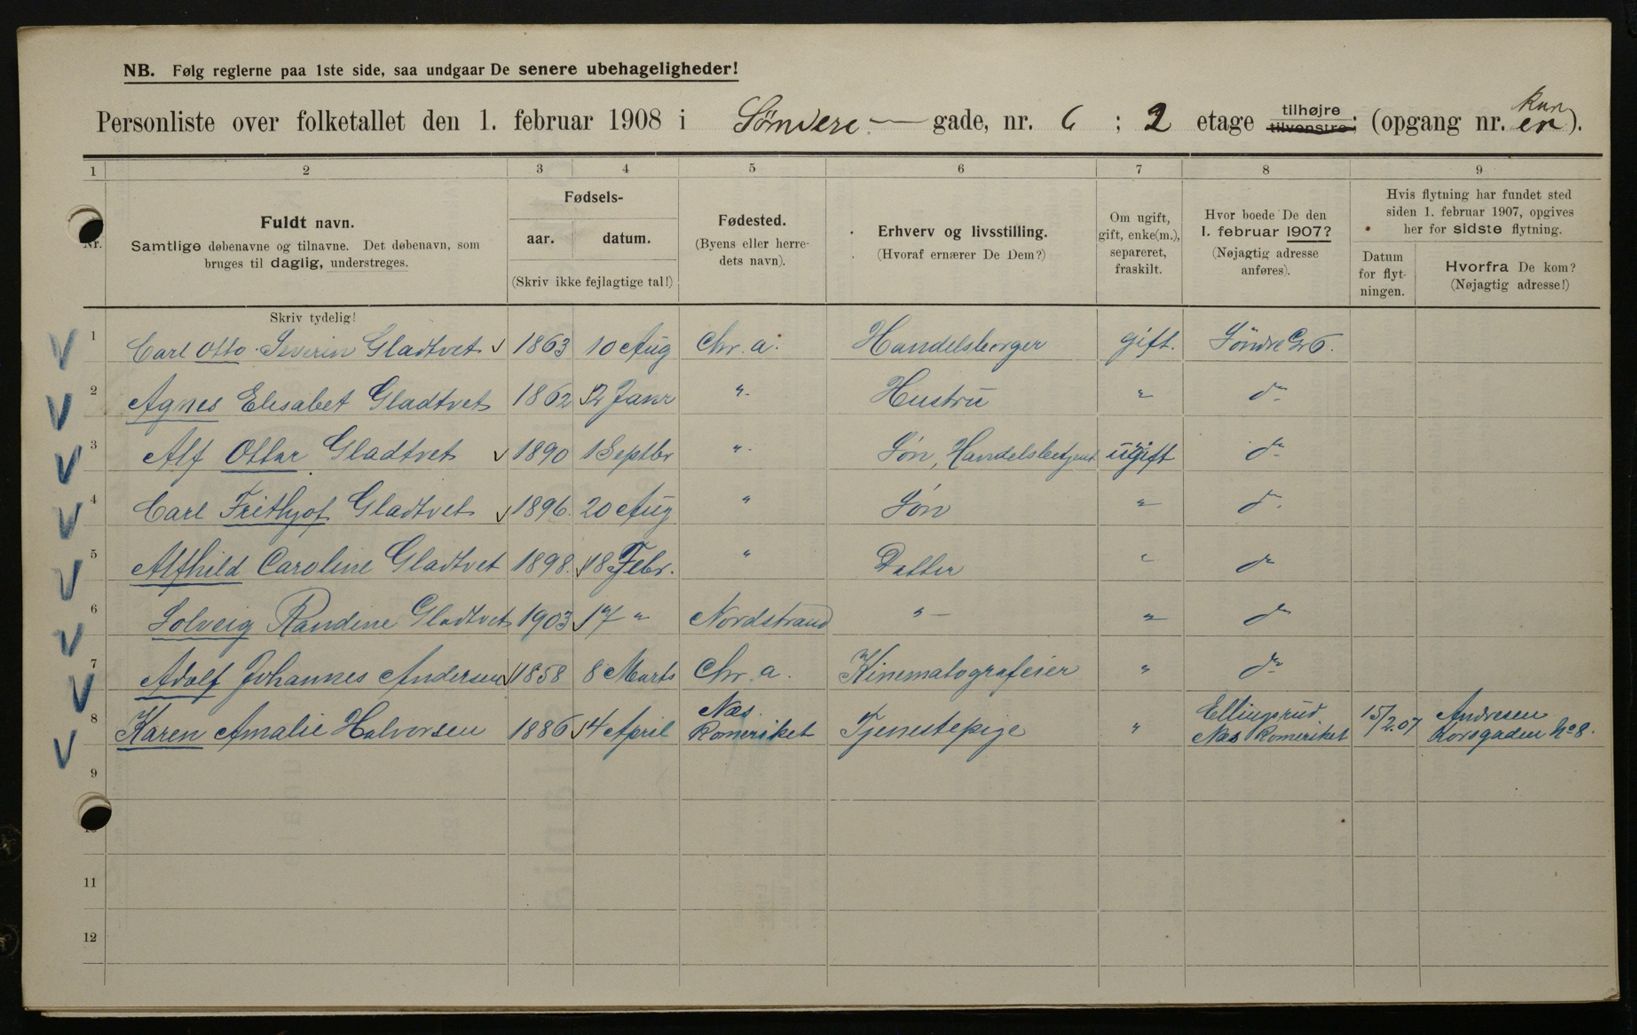 NB. Følg reglerne paa 1ste side, saa undgaar De senere ubehageligheder!
Personliste over folketallet den 1. februar 1908 i Søndre gade, nr. 6 ; 2 etage tilhøjre tilvenstre; (opgang nr. kun en).
1 2 3 4 5 6 7 8 9
Nr.
Fuldt navn.
Samtlige døbenavne og tilnavne. Det døbenavn, som
bruges til daglig, understreges.
Fødsels-
aar. datum.
(Skriv ikke fejlagtige tal!)
Fødested.
(Byens eller herre-
dets navn).
Erhverv og livsstilling.
(Hvoraf ernærer De Dem?)
Om ugift,
gift, enke(m.),
separeret,
fraskilt.
Hvor boede De den
1. februar 1907?
(Nøjagtig adresse
anføres).
Hvis flytning har fundet sted
siden 1. februar 1907, opgives
her for sidste flytning.
Datum
for flyt-
ningen.
Hvorfra De kom?
(Nøjagtig adresse!)
Skriv tydelig!
1 Carl Otto Severin Gladtvet 1863 10 Aug Chr.a. Handelsborger gift. Søndre G 6.
2 Agnes Elisabet Gladtvet 1862 2 Janr " Hustru " do
3 Alf Ottar Gladtvet 1890 1 Septbr " Søn, Handelsbetjent ugift do
4 Carl Frithjof Gladtvet 1896 20 Aug " Søn " do
5 Alfhild Caroline Gladtvet 1898 18 Febr. " Datter " do
6 Solveig Randine Gladtvet 1903 17 " Nordstrand " " do
7 Adolf Johannes Andersen 1858 8 Marts Chr.a. Kinematografeier " do
8 Karen Amalie Halvorsen 1886 4 April Næs Romeriket Tjenestepige " Ellingsrud Næs Romeriket 15/2.07 Andresen Korsgaden No 8.
9
11
12